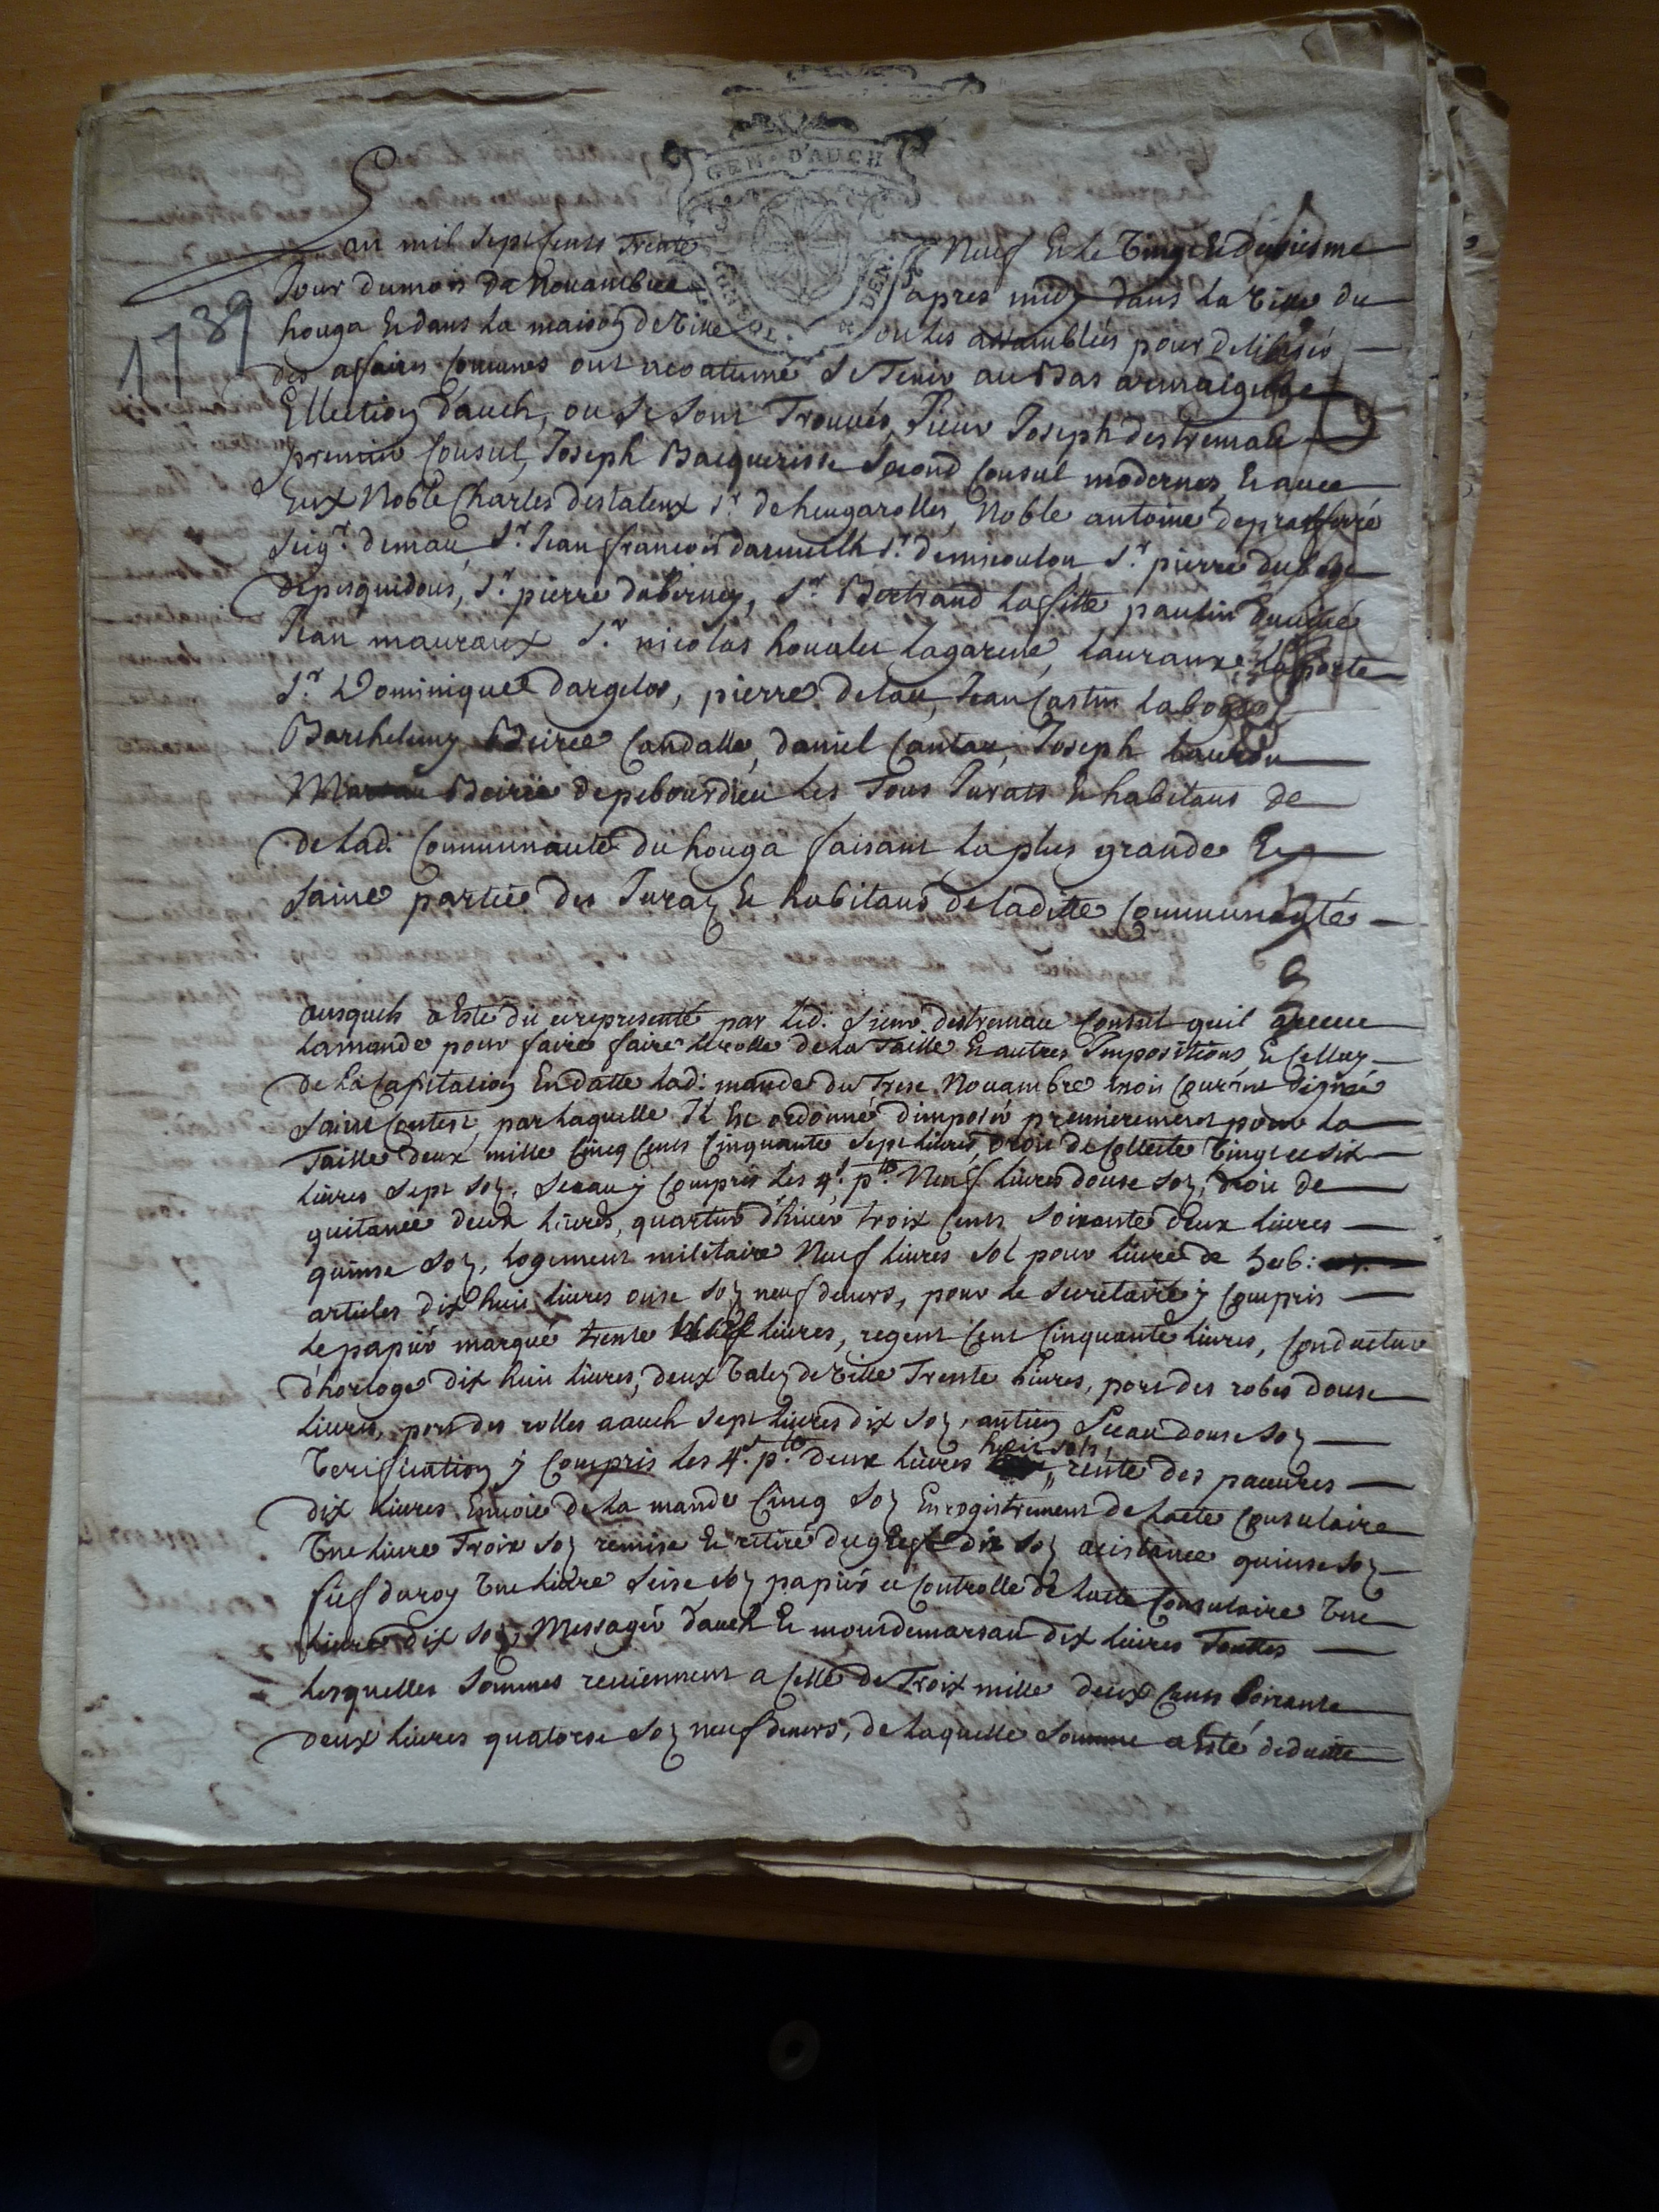 GEN. D'AUCH
L'an mil sept cents trente Neuf Et le vingt et deusiesme
1739
Jour du mois de Nouambre apres midy dans la ville du
houga Et dans la maison de ville ou les assamblées pour deliberer
des affaires Comunes ont acoutumé de se Tenir au Bas armaignac
Ellection d'auch, ou se sont Trouvés, sieur Joseph destremau
premier Consul, Joseph Bacquerisse second Consul modernes, Et avec
Eux Noble Charles destaleux sr. de heugarolles, Noble antoine deprasferré
seigr. demau, sr. Jean francois darmuilh sr. de mioulon, sr. pierre dubosc
de pesquidous, sr. pierre dubernay, sr. Bertrand lafitte paulin
Jean mauraux sr. nicolas houales lagarere, lauranx, laporte
sr. Dominique dargelos, pierre delau, Jean Castin
Barthelemy Beirie Candalle, daniel Cantau, Joseph
Beirie de pebourdieu les Tous Jurats Et habitans de
de lad. Communauté du houga faisant la plus grande Et
saine partie des Juratz Et habitans de ladite Communauté
ausquels a Esté dit et representé par led. sieur destremau Consul quil a receu
la mande pour faire faire le rolle de la Taille Et autres Impositions, Et Celluy
de la Capitation En datte lad. mande du Trese Nouambre mois Courant signée
saint Contest, par laquelle Il Est ordonné d'imposer premierement pour la
Taille deux mille Cincq Cents Cinquante sept livres, droit de Collecte vingt et six
livres sept soz, sceau y Compris les 4s. pte. Neuf livres douse soz, droit de
quitance deux livres, quartier d'hiuer troix Cents soixante deux livres
quinse soz, logement militaire Neuf livres sol pour livre de
articles dix huit livres onse soz neuf deniers, pour le secretaire y Compris
le papier marqué trente livres, regent Cent Cinquante livres, Conducteur
d'horloge dix huit livres, deux valez de ville Trente livres, port des robes douse
livres, port des rolles a auch sept livres dix soz, antien sceau douse soz
verification y Compris les 4s. pte. deux livres huit sols, rente des pauures
dix livres Enuoie de la mande Cincq soz Enregistrement de lacte Consulaire
vne livre Troix soz remise Et retiré du greffe dix soz acistance quinse soz
fief du roy vne livre seise soz papier et Controlle de lacte Consulaire vne
livre dix soz, Messager d'auch Et mont de marsan dix livres Touttes
lesquelles sommes reuiennent a Celle de Troix mille deux Cents soixante
deux livres quatorse soz neuf deniers, de laquelle somme a Esté deduitte